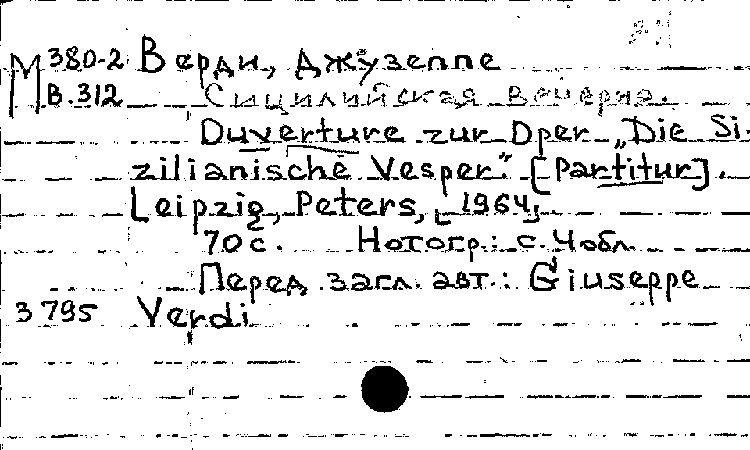 М 380-2 Верди, Джузеппе
В.312 Сицилийская вечерня.
Ouverture zur Oper „Die Si-
zilianische Vesper.“ [Partitur].
Leipzig, Peters, [1964]
70 с. Нотогр.: с. 4 обл.
Перед загл. авт.: Giuseppe
3795 Verdi